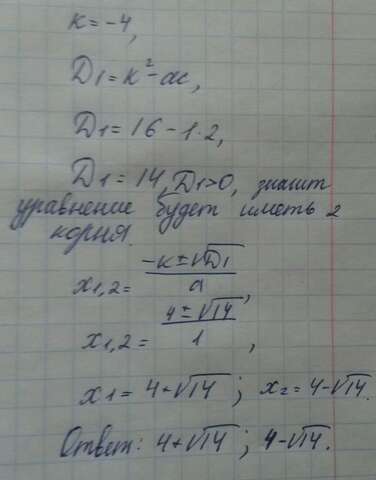 к = -4,
Д1 = к² - ac,
Д1 = 16 - 1·2,
Д1 = 14, Д1>0, значит
уравнение будет иметь 2
корня.
x1,2 = (-к ± √Д1)/a,
x1,2 = (4 ± √14)/1,
x1 = 4+√14; x2 = 4-√14.
Ответ: 4+√14; 4-√14.